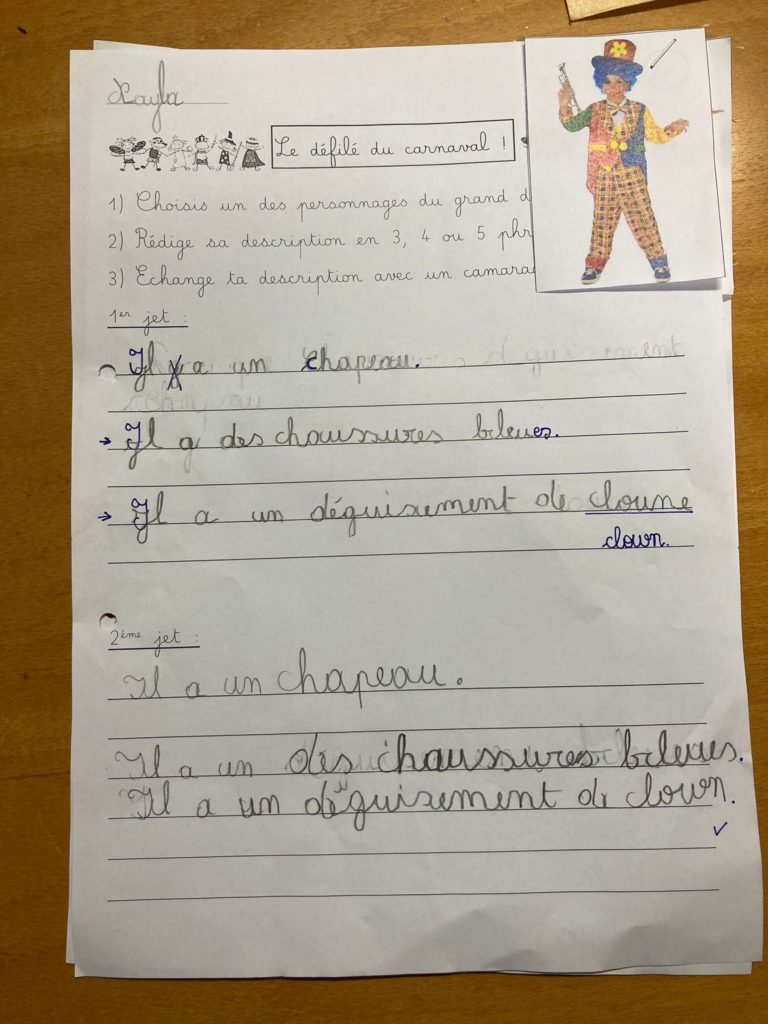 Kayla
Le défilé du carnaval !
1) Choisis un des personnages du grand d
2) Rédige sa description en 3, 4 ou 5 phr
3) Echange ta description avec un camara
1er jet :
Il a un chapeau.
→ Il a des chaussures bleues.
→ Il a un déguisement de cloune
clown.
2ème jet :
Il a un chapeau.
Il a un des chaussures bleues.
Il a un déguisement de clown.